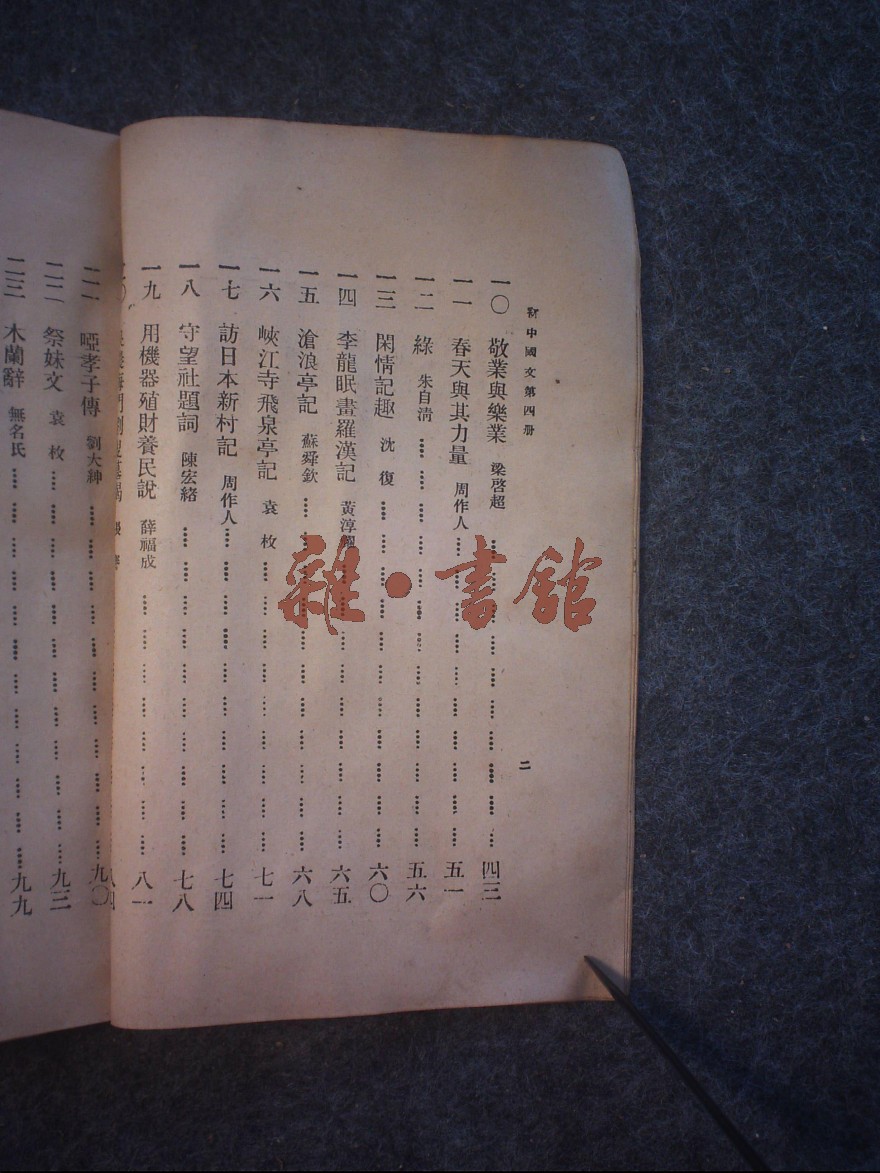 新中國文第四册
二
一〇 敬業與樂業 梁啓超 四三
一一 春天與其力量 周作人 五一
一二 綠 朱自清 五六
一三 閑情記趣 沈復 六〇
一四 李龍眠畫羅漢記 黃淳 六五
一五 滄浪亭記 蘇舜欽 六八
一六 峽江寺飛泉亭記 袁枚 七一
一七 訪日本新村記 周作人 七四
一八 守望社題詞 陳宏緒 七八
一九 用機器殖財養民說 薛福成 八一
二〇 八四
二一 啞孝子傳 劉大紳 九〇
二二 祭妹文 袁枚 九三
二三 木蘭辭 無名氏 九九
雜·書館